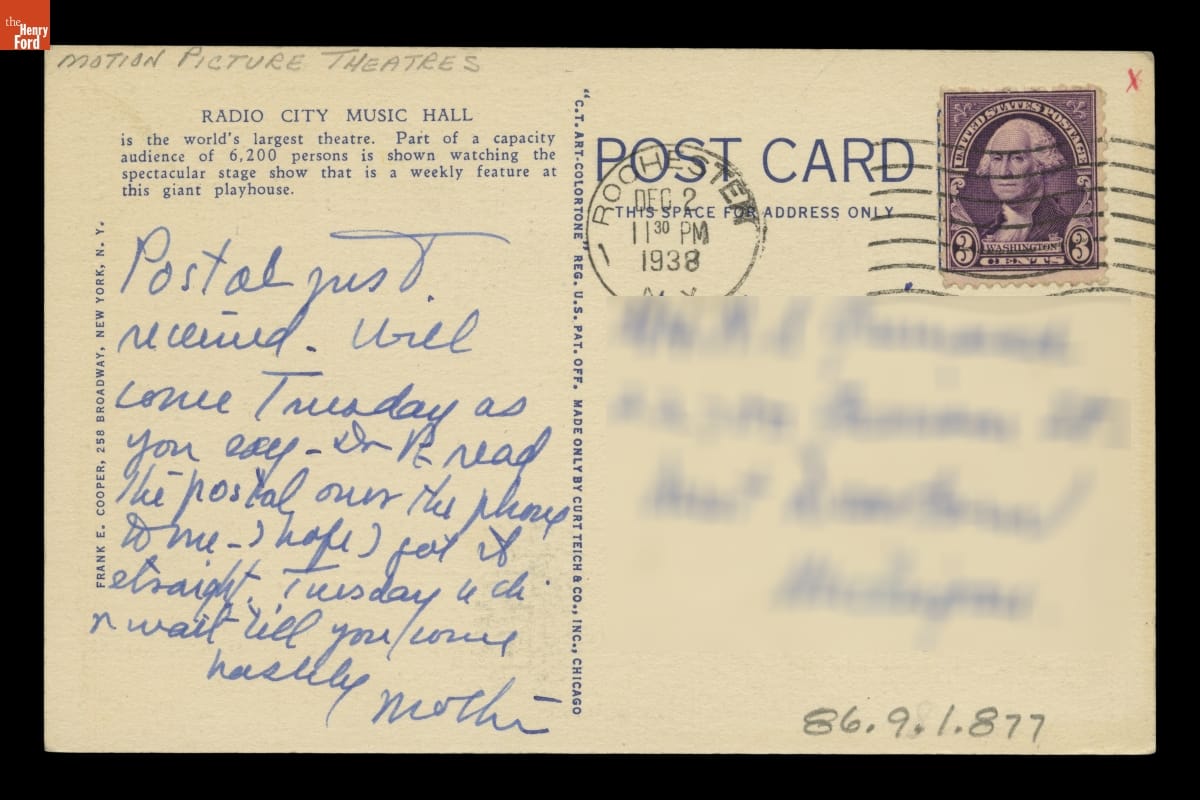 the
Henry
Ford
MOTION PICTURE THEATRES
RADIO CITY MUSIC HALL
is the world's largest theatre. Part of a capacity
audience of 6,200 persons is shown watching the
spectacular stage show that is a weekly feature at
this giant playhouse.
FRANK E. COOPER, 258 BROADWAY, NEW YORK, N. Y.
Postal just
received. Will
come Tuesday as
you say - Dr R read
the postal over the phone
to me - I hope I got it
straight. Tuesday
wait till you come
hastily
Mother
"C.T. ART-COLORTONE" REG. U.S. PAT. OFF. MADE ONLY BY CURT TEICH & CO., INC., CHICAGO
POST CARD
THIS SPACE FOR ADDRESS ONLY
ROCHESTER
DEC 2
11 30 PM
1938
N.Y.
UNITED STATES POSTAGE
WASHINGTON
3 CENTS 3
X
86.9.1.877